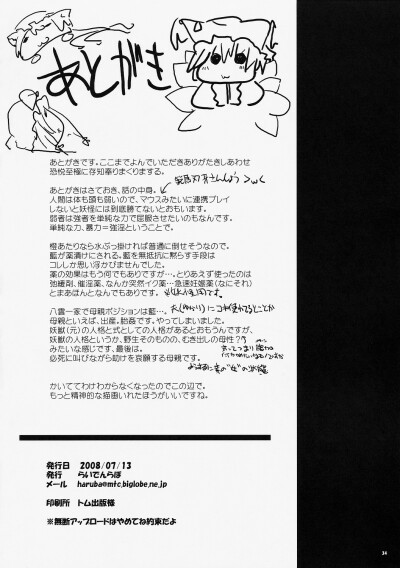 あとがき
あとがきです。ここまでよんでいただきありがたきしあわせ
恐悦至極に存知奉りまくりまする。
あとがきはさておき、話の中身。
人間は体も頭も弱いので、マウスみたいに連携プレイ
しないと妖怪には到底勝てないとおもいます。
弱者は強者を単純な力で屈服させたいのもなんです。
単純な力、暴力=強淫ということで。
橙あたりなら水ぶっ掛ければ普通に倒せそうなので。
藍が薬漬けにされる。藍を無抵抗に黙らす手段は
コレしか思い浮かびませんでした。
薬の効果はもう何でもありですが…。とりあえず使ったのは
弛緩剤、催淫薬、なんか突然イク薬…急速妊娠薬(なにそれ)
とまあほんとなんでもあります。
八雲一家で母親ポジションは藍…。
母親といえば、出産、胎姦です。やってしまいました。
妖獣(元)の人格と式としての人格があるとおもうんですが、
妖獣の人格というか、野生そのものの、むき出しの母性?
みたいな感じです、最後は。
必死に叫びながら助けを哀願する母親です。
かいててわけわからなくなったのでこの辺で。
もっと精神的な描画いれたほうがいいですね。
発行日 2008/07/13
発行 らいでんらぼ
メール haruba@mtc.biglobe.ne.jp
印刷所 トム出版様
※無断アップロードはやめてね約束だよ
34